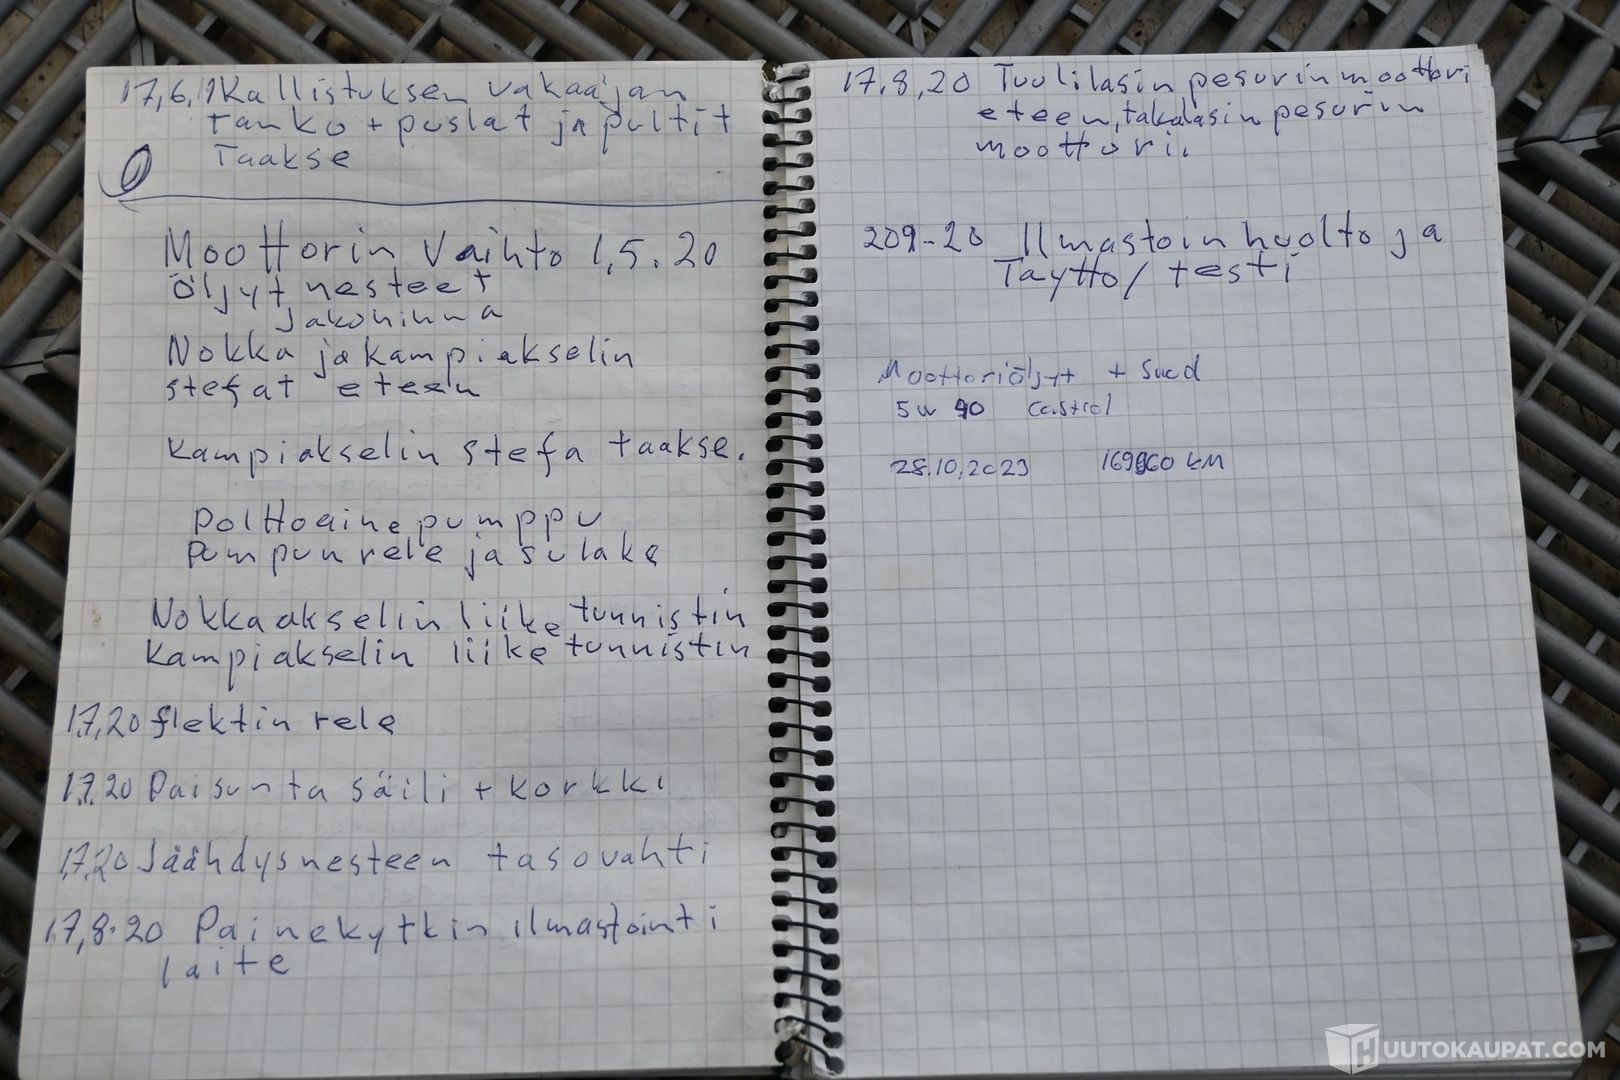 17,6,19 Kallistuksen vakaajan
tanko + puslat ja pultit
Taakse
Moottorin Vaihto 1,5.20
Öljyt nesteet
Jakohihna
Nokka ja kampiakselin
stefat eteen
Kampiakselin stefa taakse.
Polttoainepumppu
Pumpun rele ja sulake
Nokkaakselin liiketunnistin
Kampiakselin liiketunnistin
1.7,20 flektin rele
1.7.20 Paisunta säili + korkki
1.7.20 Jäähdysnesteen tasovahti
17,8.20 Painekytkin ilmastointi
laite
17.8,20 Tuulilasin pesurin moottori
eteen, takalasin pesurin
moottori.
209-20 Ilmastoin huolto ja
Täyttö/testi
Moottoriöljyt + Suod
5w 40 Castrol
28.10.2023 169960 KM
UUTOKAUPAT.COM